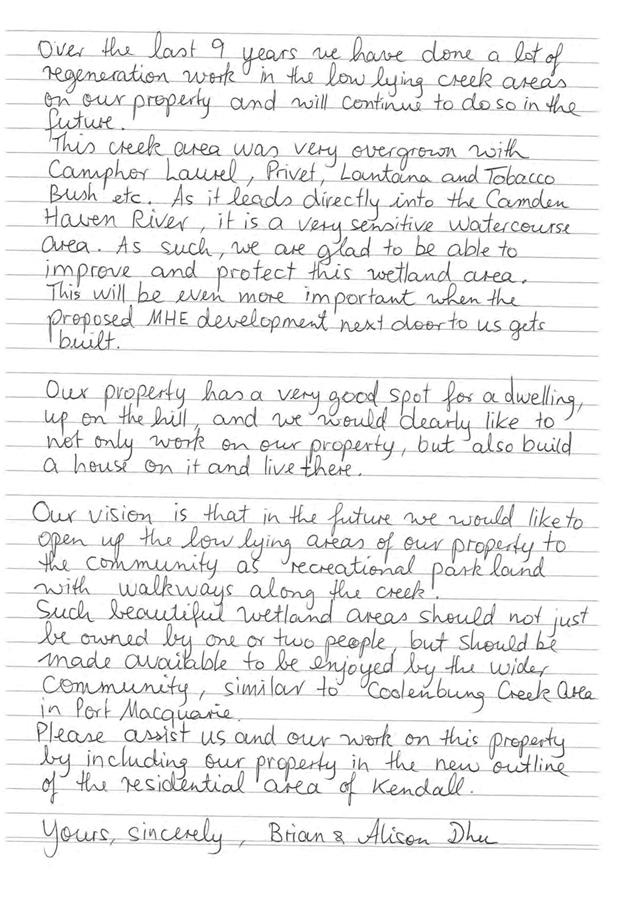 Over the last 9 years we have done a lot of
regeneration work in the low lying creek areas
on our property and will continue to do so in the
future.
This creek area was very overgrown with
Camphor Laurel, Privet, Lantana and Tobacco
Bush etc. As it leads directly into the Camden
Haven River, it is a very sensitive watercourse
area. As such, we are glad to be able to
improve and protect this wetland area.
This will be even more important when the
proposed MHE development next door to us gets
built.
Our property has a very good spot for a dwelling,
up on the hill, and we would dearly like to
not only work on our property, but also build
a house on it and live there.
Our vision is that in the future we would like to
open up the low lying areas of our property to
the community as recreational park land
with walkways along the creek.
Such beautiful wetland areas should not just
be owned by one or two people, but should be
made available to be enjoyed by the wider
community, similar to Coolenbung Creek Area
in Port Macquarie.
Please assist us and our work on this property
by including our property in the new outline
of the residential area of Kendall.
Yours, sincerely, Brian & Alison Dhu